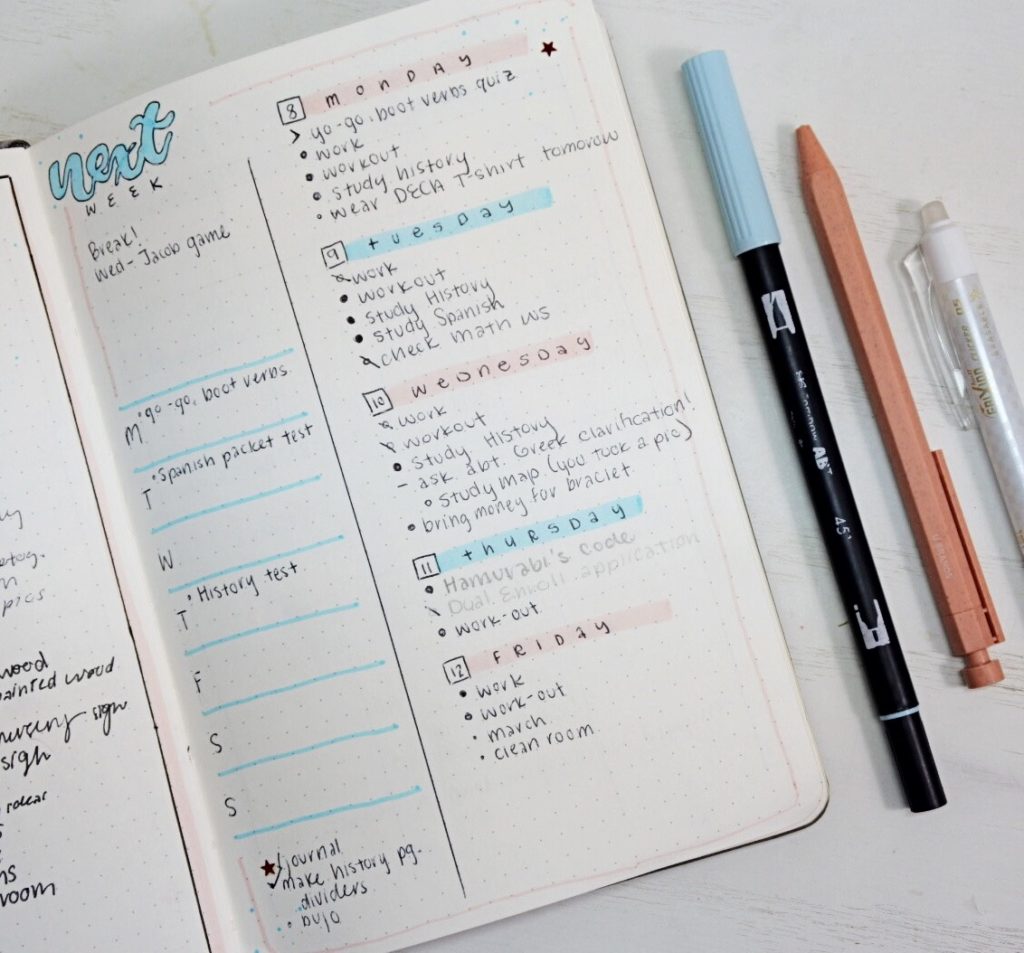 next
WEEK
Break!
Wed- Jacob game
M •go-go, boot verbs
T •Spanish packet test
W
T •History test
F
S
S
journal
make history pg.
dividers
• bujo
8 MONDAY
> go-go, boot verbs quiz
• work
• workout
• study history
• wear DECA T-shirt tomorow
9 tuesday
work
• workout
• study History
• study Spanish
check math ws
10 WEDNESDAY
work
workout
• study History
- ask abt. Greek clarification!
• study map (you took a pic)
• bring money for braclet
11 thursday
• Hamurabi's Code
Dual Enroll. application
• work-out
12 FRIDAY
• work
• work-out
• march
• clean room
pics
wood
painted wood
sign
sign
room
AB